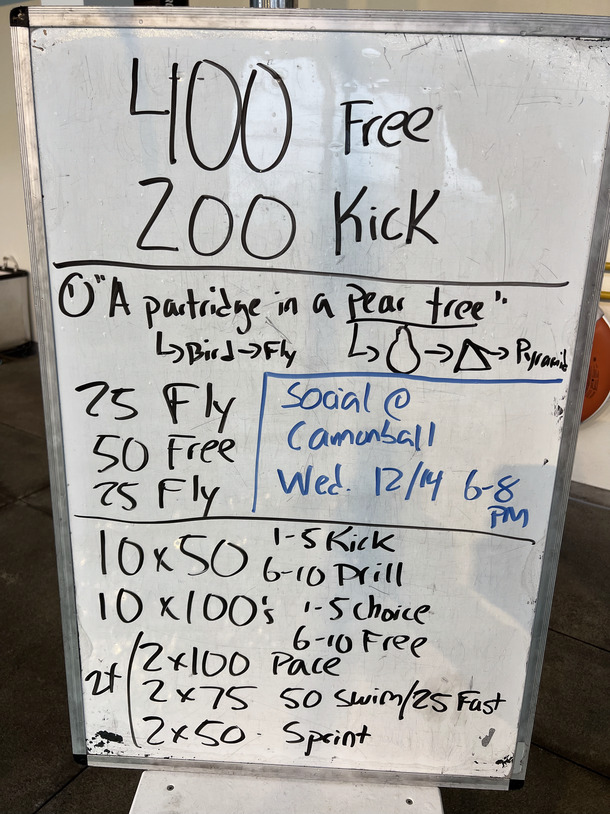 400 Free
200 Kick
① "A partridge in a pear tree"
↳Bird→Fly ↳ → → Pyramid
25 Fly
50 Free
25 Fly
Social @
Cannonball
Wed. 12/14 6-8
PM
10x50 1-5 Kick
6-10 Drill
10x100's 1-5 choice
6-10 Free
2x100 Pace
2x 2x75 50 Swim/25 Fast
2x50 - Sprint